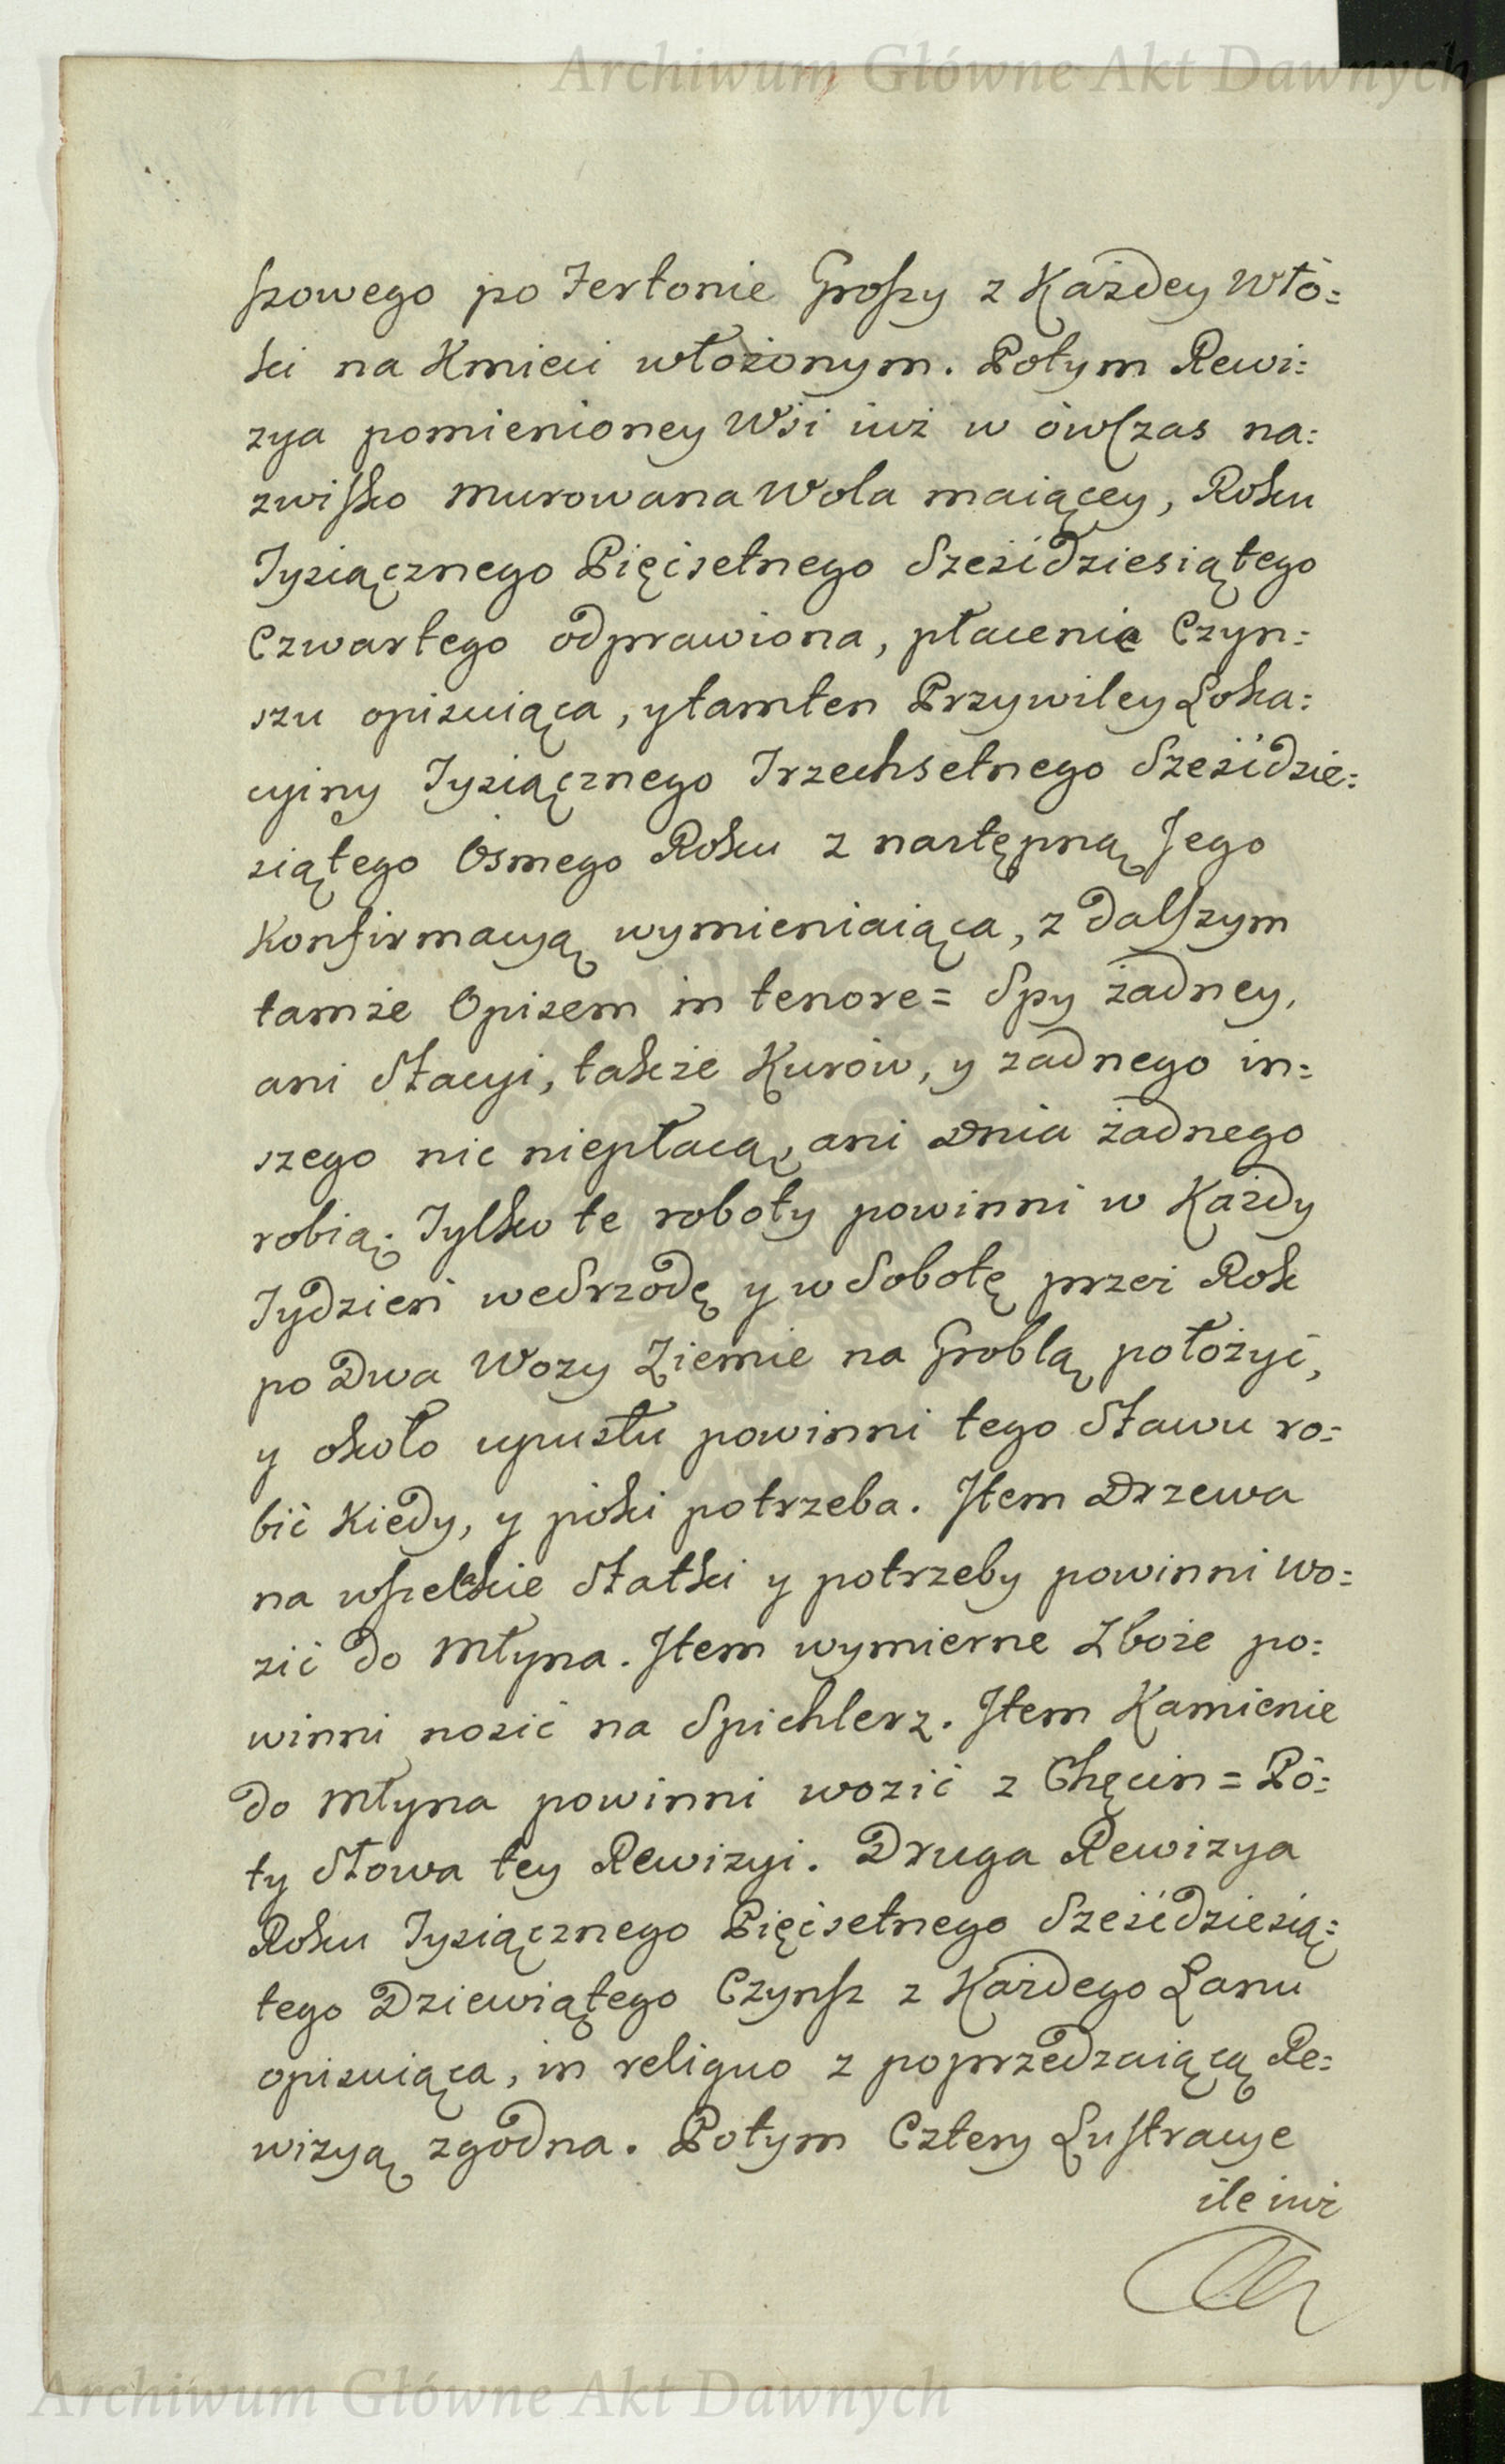 Archiwum Główne Akt Dawnych
szowego po Fertonie Groszy z Każdey Włó=
ki na Kmieci włożonym. Potym Rewi=
zya pomienioney Wsi iuż w ówczas na=
zwisko Murowana Wola maiącey, Roku
Tysiącznego Pięćsetnego Sześćdziesiątego
Czwartego odprawiona, płacenie Czyn=
szu opisuiąca, y tamten Przywiley Loka=
cyiny Tysiącznego Trzechsetnego Sześćdzie=
siątego Osmego Roku z następną Jego
Konfirmacyą wymieniaiąca, z dalszym
tamże Opisem in tenore = Spy żadney,
ani Stacyi, także Kurów, y żadnego in=
szego nic niepłacą, ani Dnia żadnego
robią; Tylko te roboty powinni w Każdy
Tydzień we Srzodę y w Sobotę przez Rok
po Dwa Wozy Ziemie na Groblą położyć,
y około upustu powinni tego Stawu ro=
bić Kiedy, y póki potrzeba. Item Drzewa
na wszelakie Statki y potrzeby powinni wo=
zić do Młyna. Item wymierne Zboże po=
winni nosić na Spichlerz. Item Kamienie
do Młyna powinni wozić z Chęcin = Pó=
ty Słowa tey Rewizyi. Druga Rewizya
Roku Tysiącznego Pięćsetnego Sześćdziesią=
tego Dziewiątego Czynsz z Każdego Łanu
opisuiąca, in reliquo z poprzedzaiącą Re=
wizyą zgodna. Potym Cztery Lustracye
ile iuż
Archiwum Główne Akt Dawnych